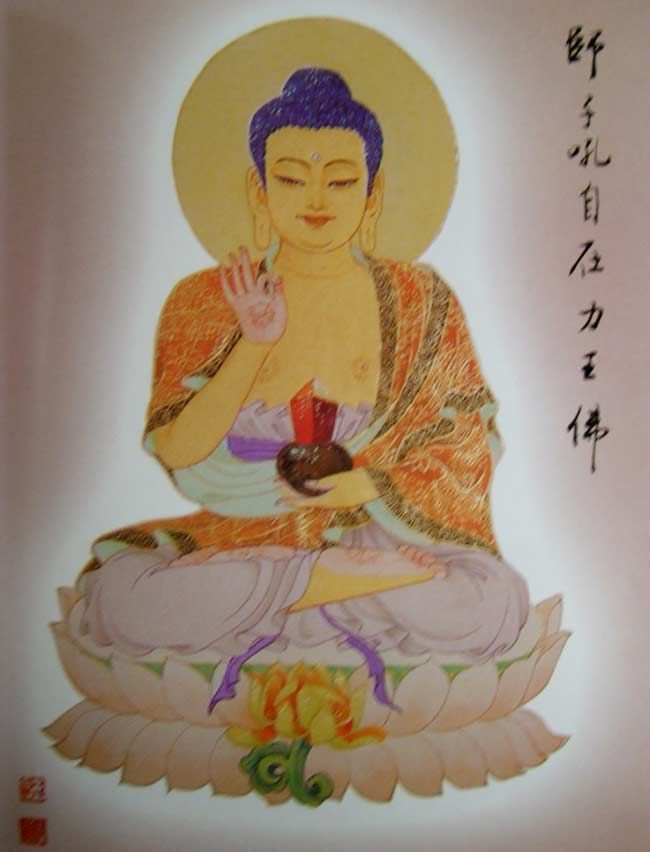 師子吼自在力王佛